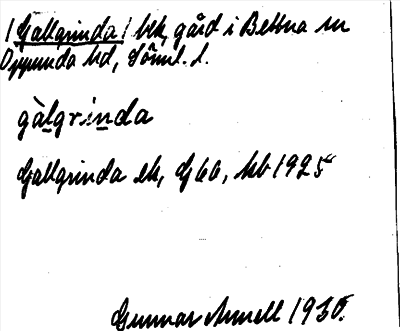 /Gallgrinda/ bek, gård i Bettna sn
Oppunda hd, Söml. l.
gàlgrinda
Gallgrinda ek, G66, kb 1925
Gunnar 1930.